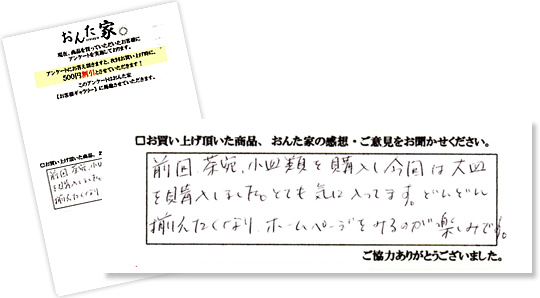 おんた家。
現在、商品を買っていただいたお客様に
アンケートを実施しております。
アンケートにお答え頂きますと、次回お買い上げ時に、
500円割引とさせていただきます！
このアンケートはおんた家
【お客様ギャラリー】に掲載させていただきます。
□お買い上げ頂いた商品、お
前回、茶碗、小皿
を購入しました
揃えたくなり
□お買い上げ頂いた商品、おんた家の感想・ご意見をお聞かせください。
前回、茶碗、小皿類を購入し今回は大皿
を購入しました。とても気に入ってます。どんどん
揃えたくなり、ホームページをみるのが楽しみです。
ご協力ありがとうございました。